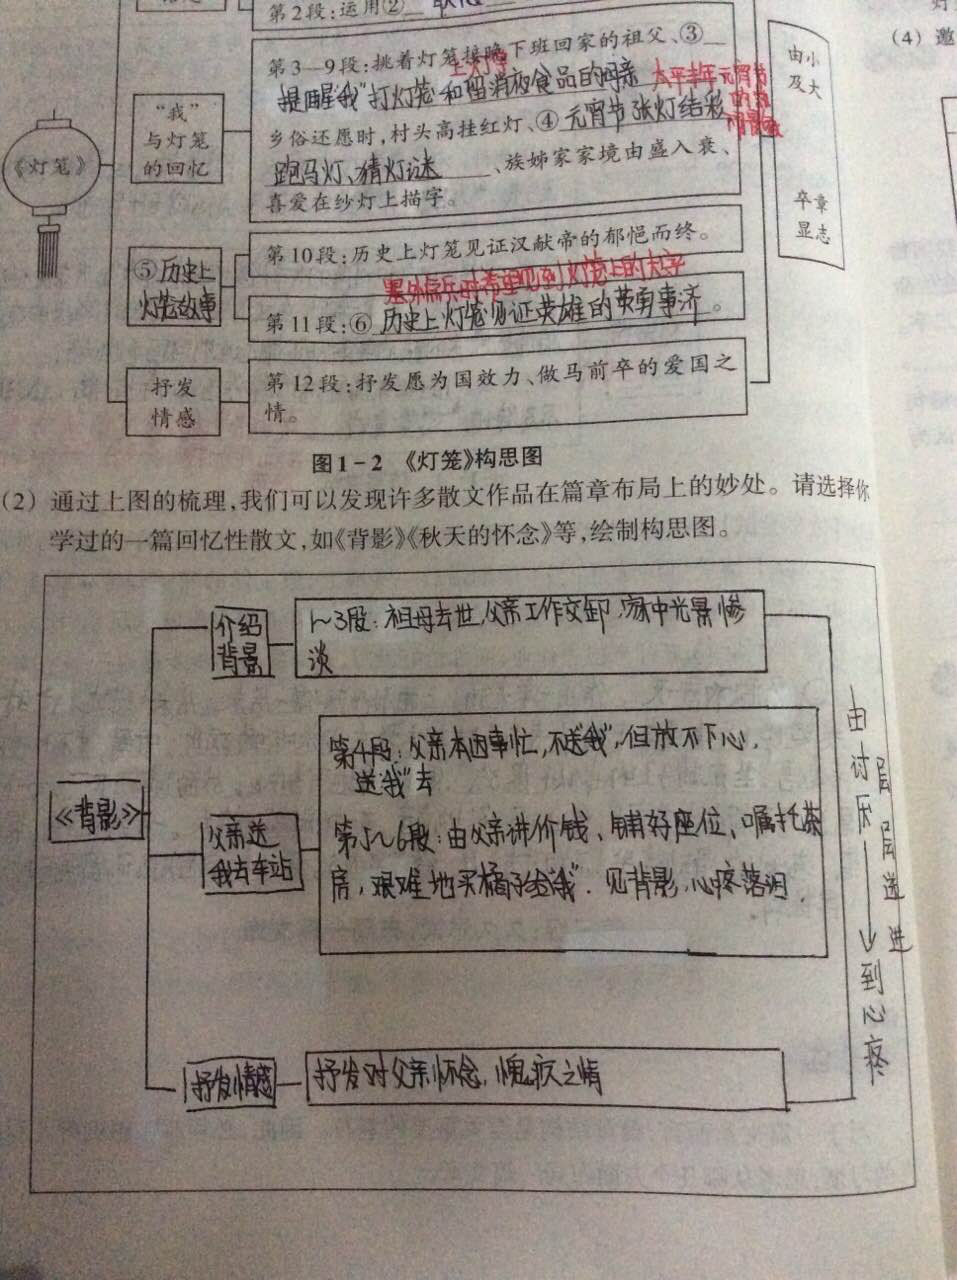 第2段:运用②
(4) 邀
第3-9段:挑着灯笼接晚下班回家的祖父、③
上灯学
提醒“我”打灯笼和留消夜食品的母亲
太平丰年元宵节
乡俗还愿时,村头高挂红灯、④元宵节张灯结彩
跑马灯、猜灯谜、族姊家家境由盛入衰、
喜爱在纱灯上描字。
“我”
与灯笼
的回忆
《灯笼》
由小
及大
卒章
显志
第10段:历史上灯笼见证汉献帝的郁悒而终。
⑤历史上
灯笼故事
第11段:⑥历史上灯笼见证英雄的英勇事济。
抒发
情感
第12段:抒发愿为国效力、做马前卒的爱国之
情。
图1-2 《灯笼》构思图
(2) 通过上图的梳理,我们可以发现许多散文作品在篇章布局上的妙处。请选择你
学过的一篇回忆性散文,如《背影》《秋天的怀念》等,绘制构思图。
介绍
背景
1~3段:祖母去世,父亲工作交卸,家中光景惨
淡
《背影》
父亲送
我去车站
第4段:父亲本因事忙,不送“我”,但放不下心,
送“我”去
第5~6段:由父亲讲价钱、铺好座位、嘱托茶
房,艰难地买橘子给“我”.见背影,心疼落泪.
抒发情感
抒发对父亲怀念,愧疚之情
由讨厌→到心疼
层层递进